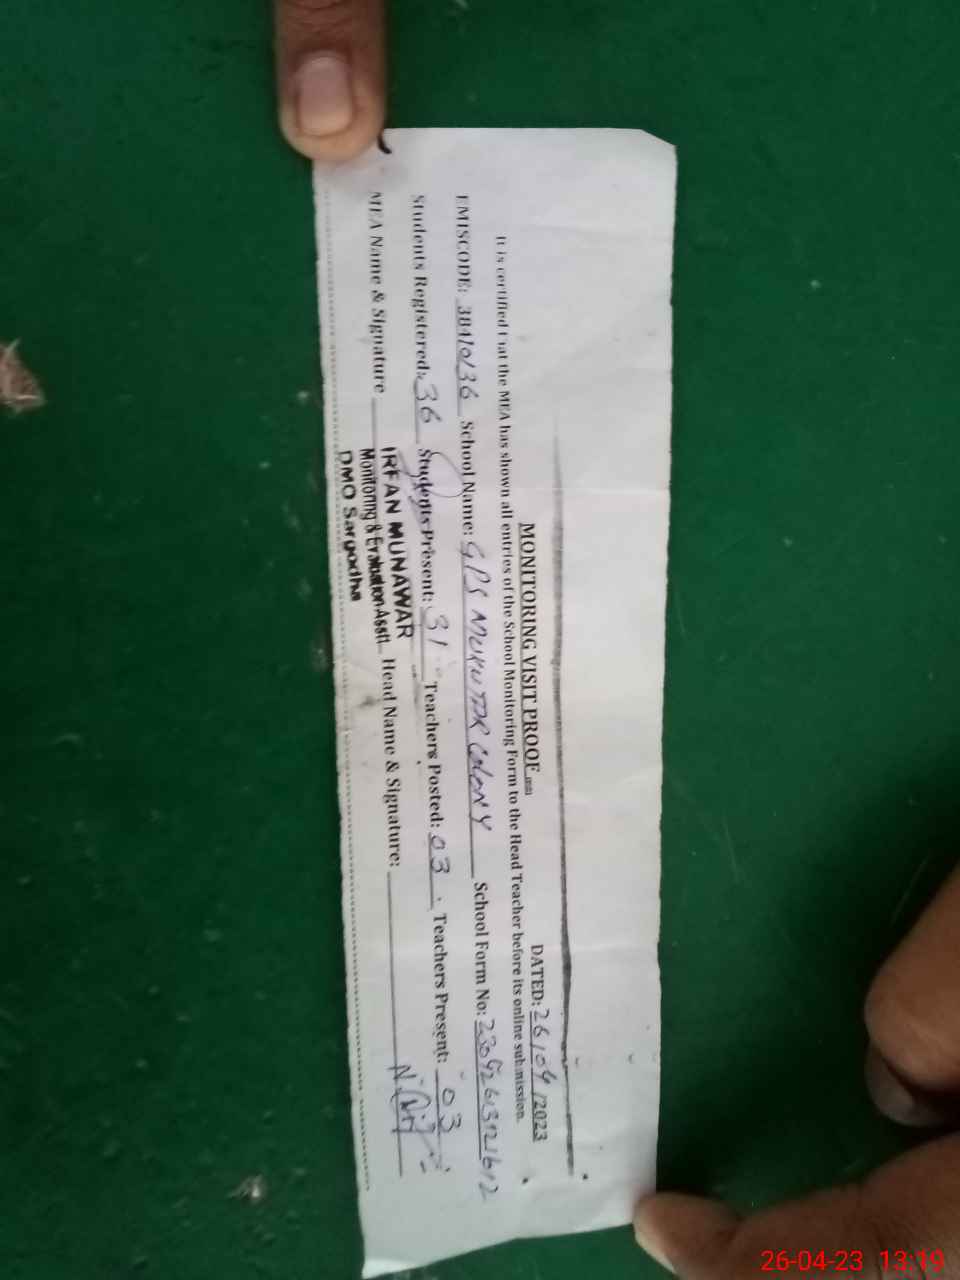 MONITORING VISIT PROOF
DATED: 26/04/2023
It is certified that the MEA has shown all entries of the School Monitoring Form to the Head Teacher before its online submission.
EMISCODE: 38410136 School Name: GPS MURNTDR COLONY School Form No:
Students Registered: 36 Students Present: 31 Teachers Posted: 03 Teachers Present: 03
MEA Name & Signature Head Name & Signature:
IRFAN MUNAWAR
Monitoring & Evaluation Asstt
DMO Sargodha
26-04-23 13:19